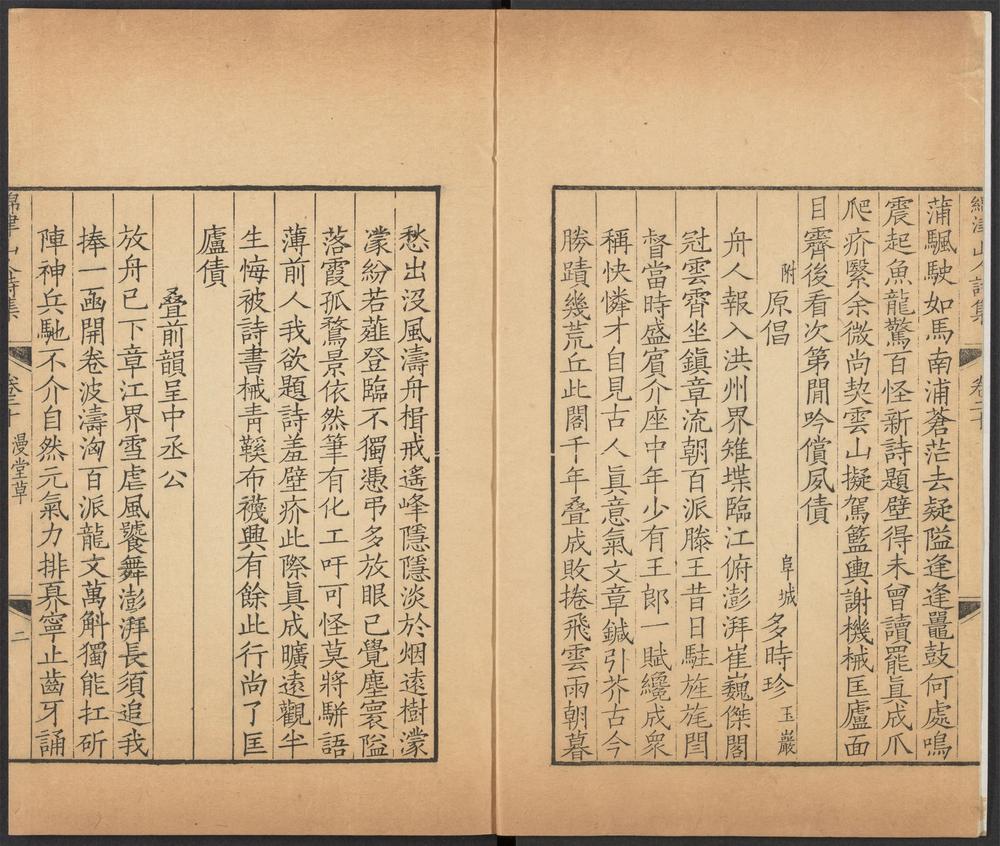 綿津山人詩集
卷二十
蒲颿駛如馬南浦蒼茫去疑隘逢逢鼉鼓何處鳴
震起魚龍驚百怪新詩題壁得未曾讀罷眞成爪
爬疥繄余微尚契雲山擬駕籃輿謝機械匡廬面
目霽後看次第閒吟償夙債
附原倡
阜城 多時珍 玉巖
舟人報入洪州界雉堞臨江俯澎湃崔巍傑閣
冠雲霄坐鎭章流朝百派滕王昔日駐旌旄閻
督當時盛賓介座中年少有王郎一賦纔成衆
稱快憐才自見古人眞意氣文章鍼引芥古今
勝蹟幾荒丘此閣千年叠成敗捲飛雲雨朝暮
愁出沒風濤舟楫戒遙峰隱隱淡於烟遠樹濛
濛紛若薤登臨不獨憑弔多放眼已覺塵寰隘
落霞孤鶩景依然筆有化工吁可怪莫將駢語
薄前人我欲題詩羞壁疥此際眞成曠遠觀半
生悔被詩書械靑鞵布襪興有餘此行尚了匡
廬債
叠前韻呈中丞公
放舟已下章江界雪虐風饕舞澎湃長須追我
捧一函開卷波濤洶百派龍文萬斛獨能扛斫
陣神兵馳不介自然元氣力排奡寧止齒牙誦
綿津山人詩集
卷二十
漫堂草
二